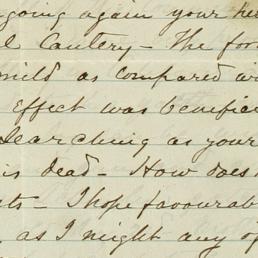 going again your he
l Cautery - The for
mild as compared w
Effect was benefic
Searching as your
is dead - How does
ts - I hope favourab
as I might any of